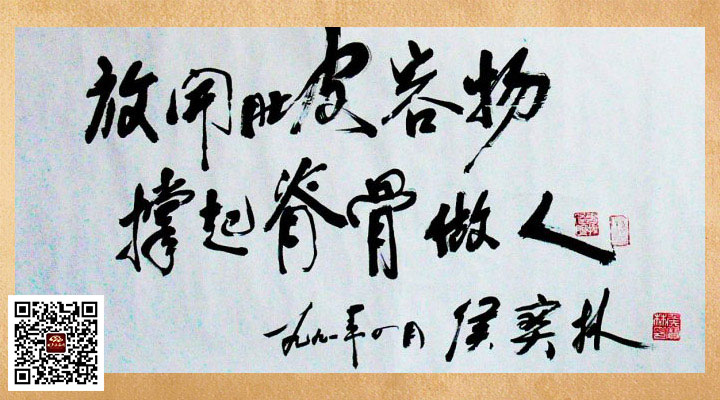 放開肚皮容物
撑起脊骨做人
一九九一年 月 侯寶林